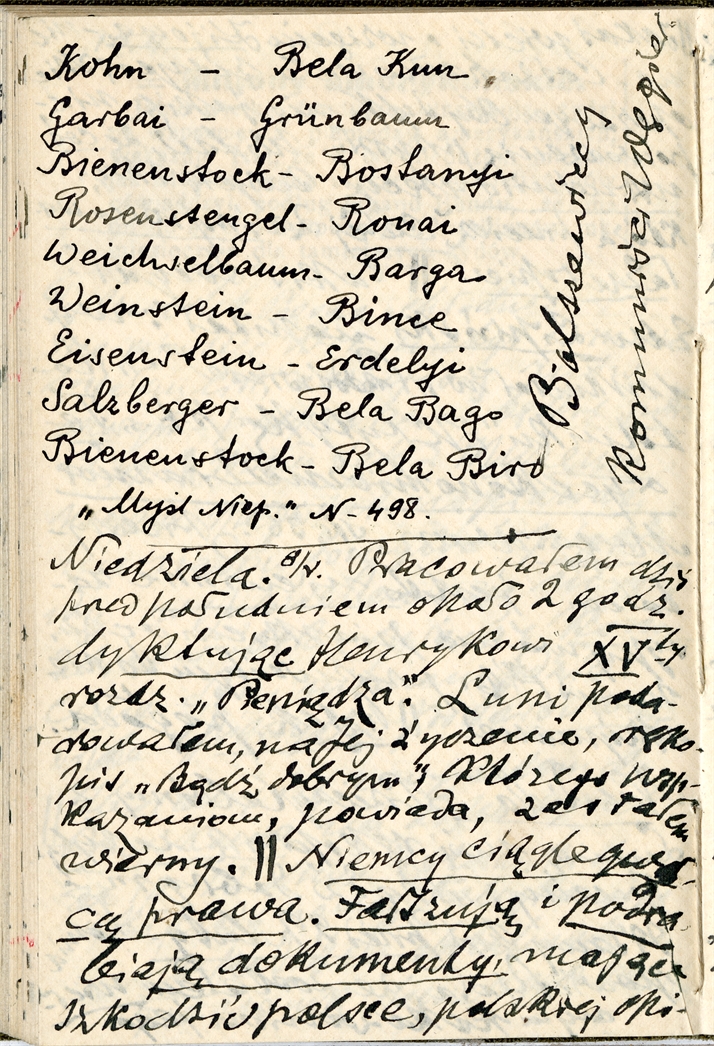 Kohn – Bela Kun
Garbai – Grünbaum
Bienenstock – Bostanyi
Rosenstengel – Ronai
Weichselbaum – Barga
Weinstein – Bince
Eisenstein – Erdelyi
Salzberger – Bela Bago
Bienenstock – Bela Biro
„Myśl Niep." N – 498.
Bolszewicy
Komuniści
Niedziela. Pracowałem dziś
przed południem około 2 godz.
dyktując Henrykowi XVty
rozdz. „Pieniądza". Luni poda-
rowałem, na Jej życzenie, ręko-
pis „Bądź dobrym",
kazaniom, powiada, zostałem
wierny. || Niemcy ciągle gwał-
cą prawa. Fałszują i podra-
biają dokumenty, mające
szkodzić Polsce, polskiej opi-